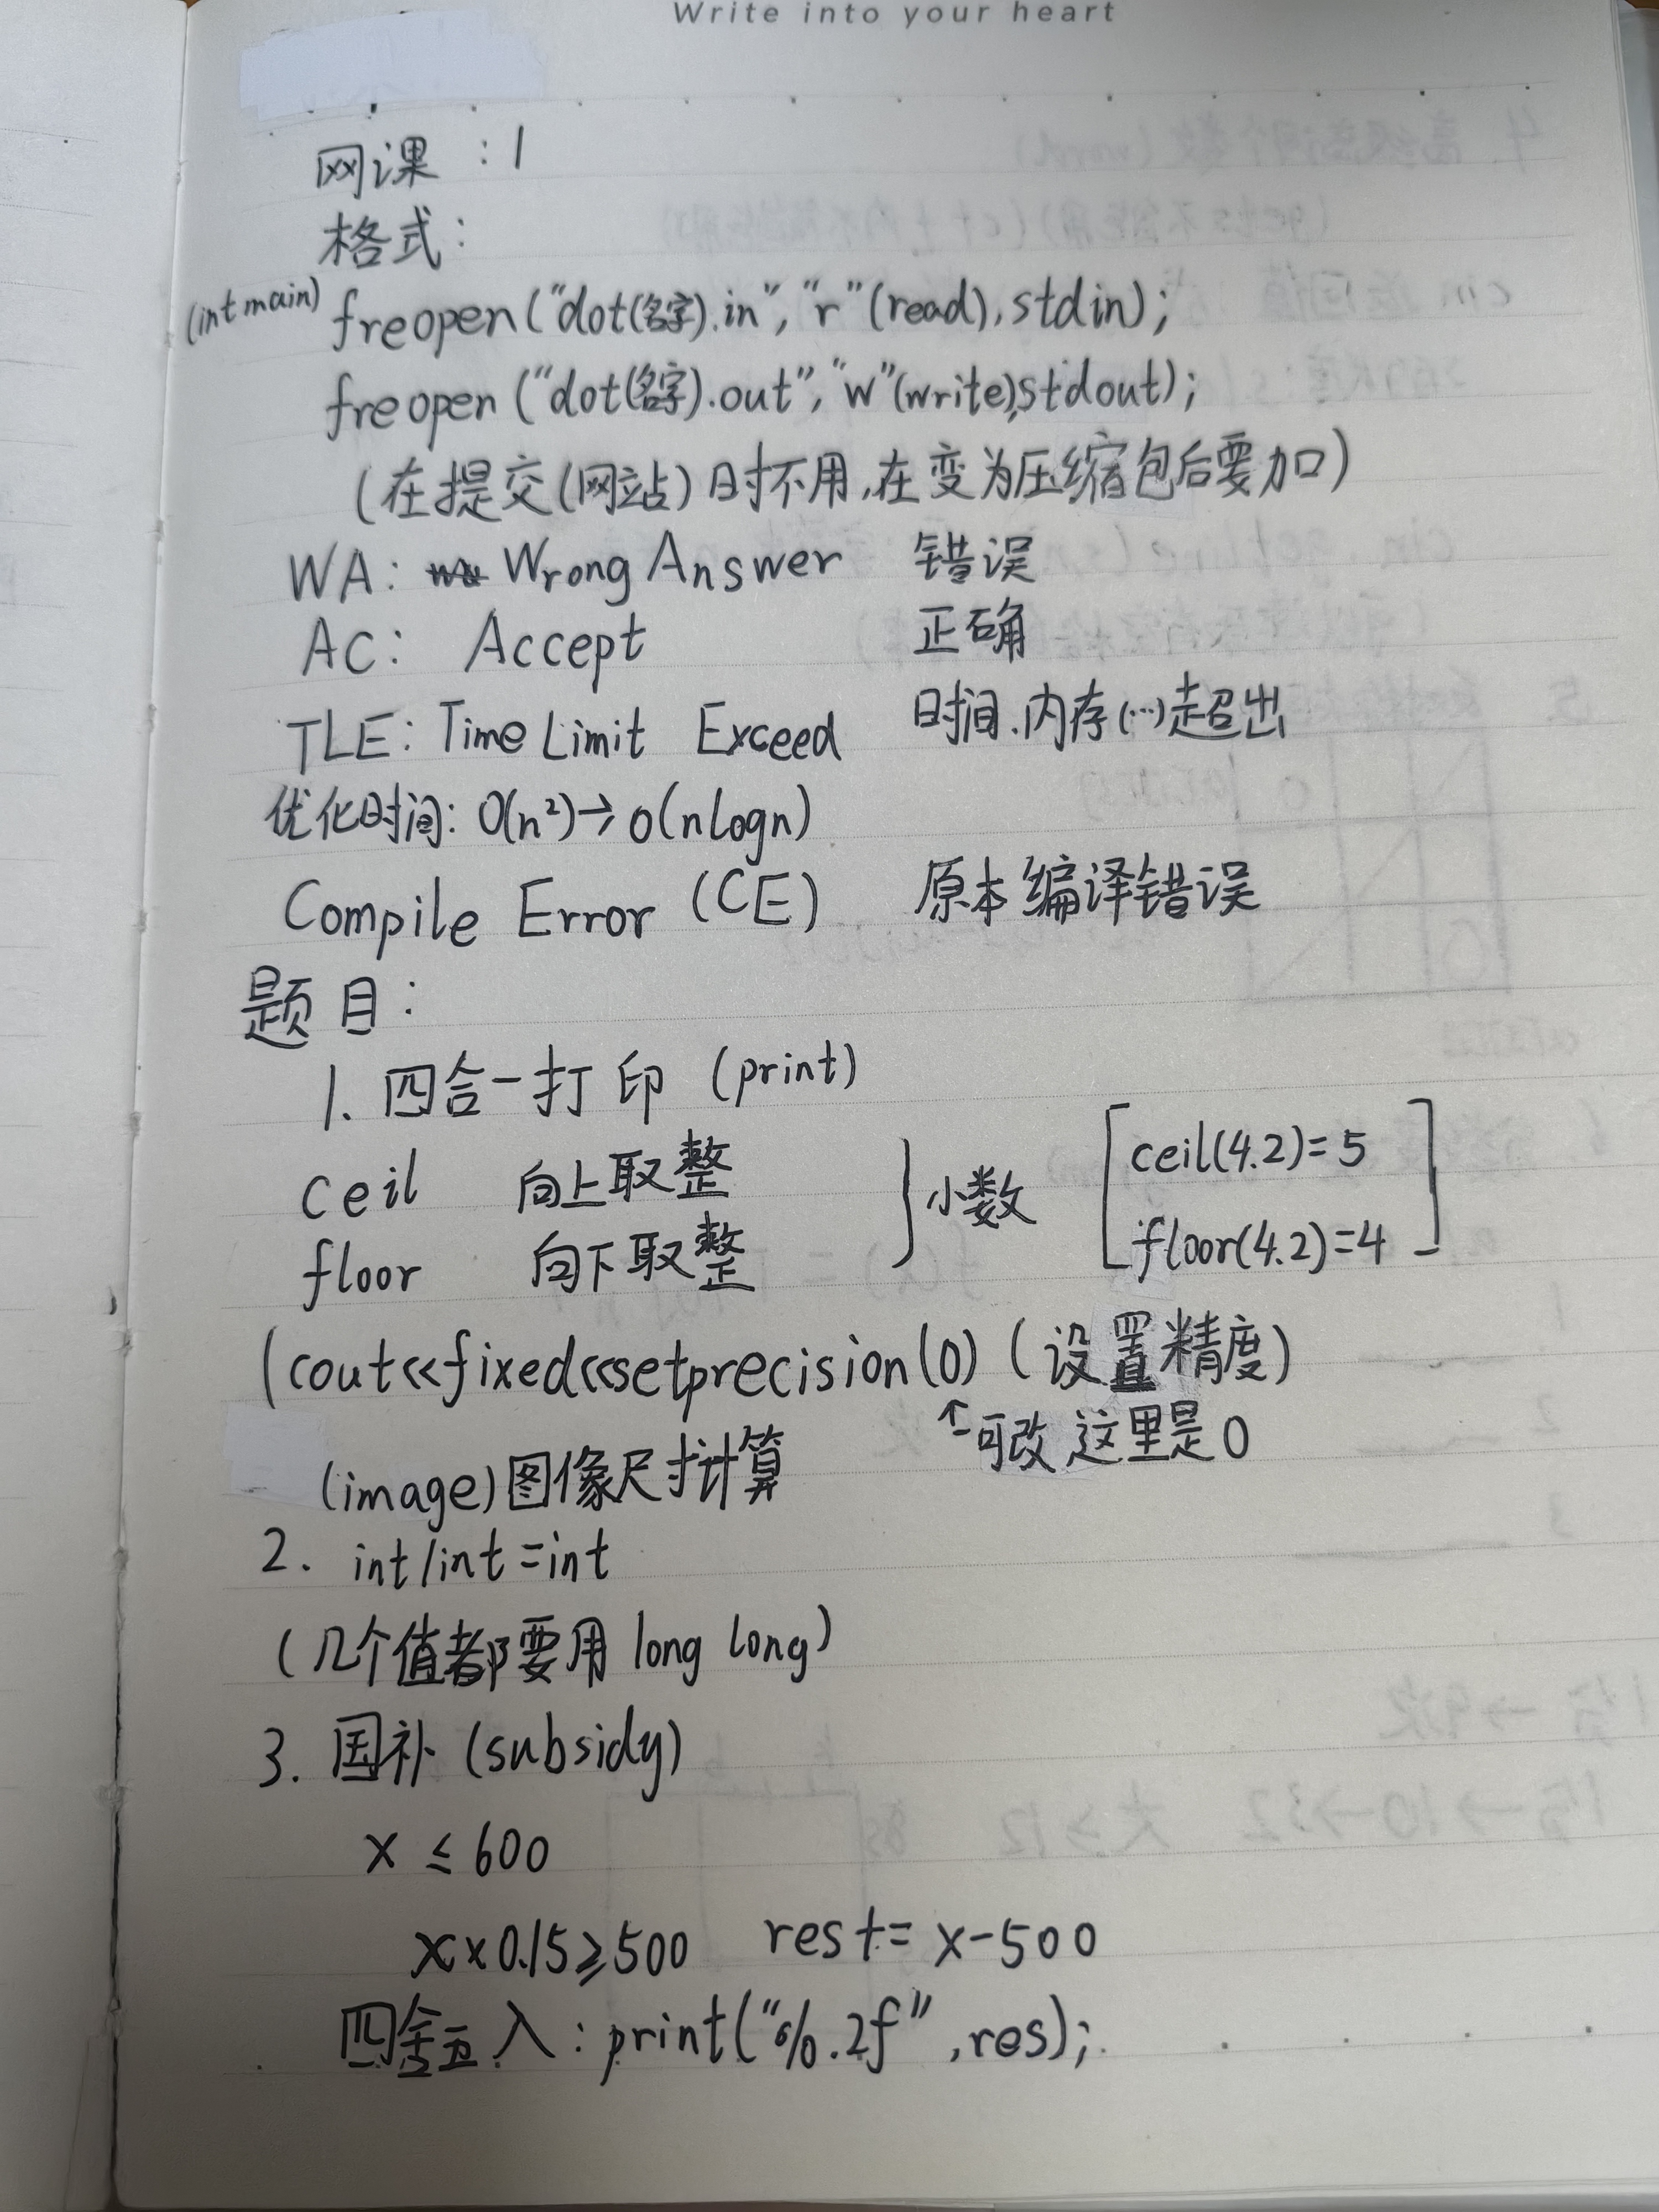 Write into your heart
网课：1
格式：
(int main) freopen("dot(名字).in","r"(read),stdin);
freopen("dot(名字).out","w"(write),stdout);
(在提交(网站)时不用,在变为压缩包后要加)
WA: Wrong Answer 错误
AC: Accept 正确
TLE: Time Limit Exceed 时间.内存(…)超出
优化时间: O(n²)→O(nlogn)
Compile Error (CE) 原本编译错误
题目：
1. 四合一打印 (print)
ceil 向上取整 } 小数 [ceil(4.2)=5
floor 向下取整 floor(4.2)=4]
(cout<<fixed<<setprecision(0) (设置精度)
↑可改 这里是0
(image)图像尺寸计算
2. int/int=int
(几个值都要用 long long)
3. 国补 (subsidy)
x ≤ 600
x×0.15≥500 res += x-500
四舍五入: print("%.2f",res);